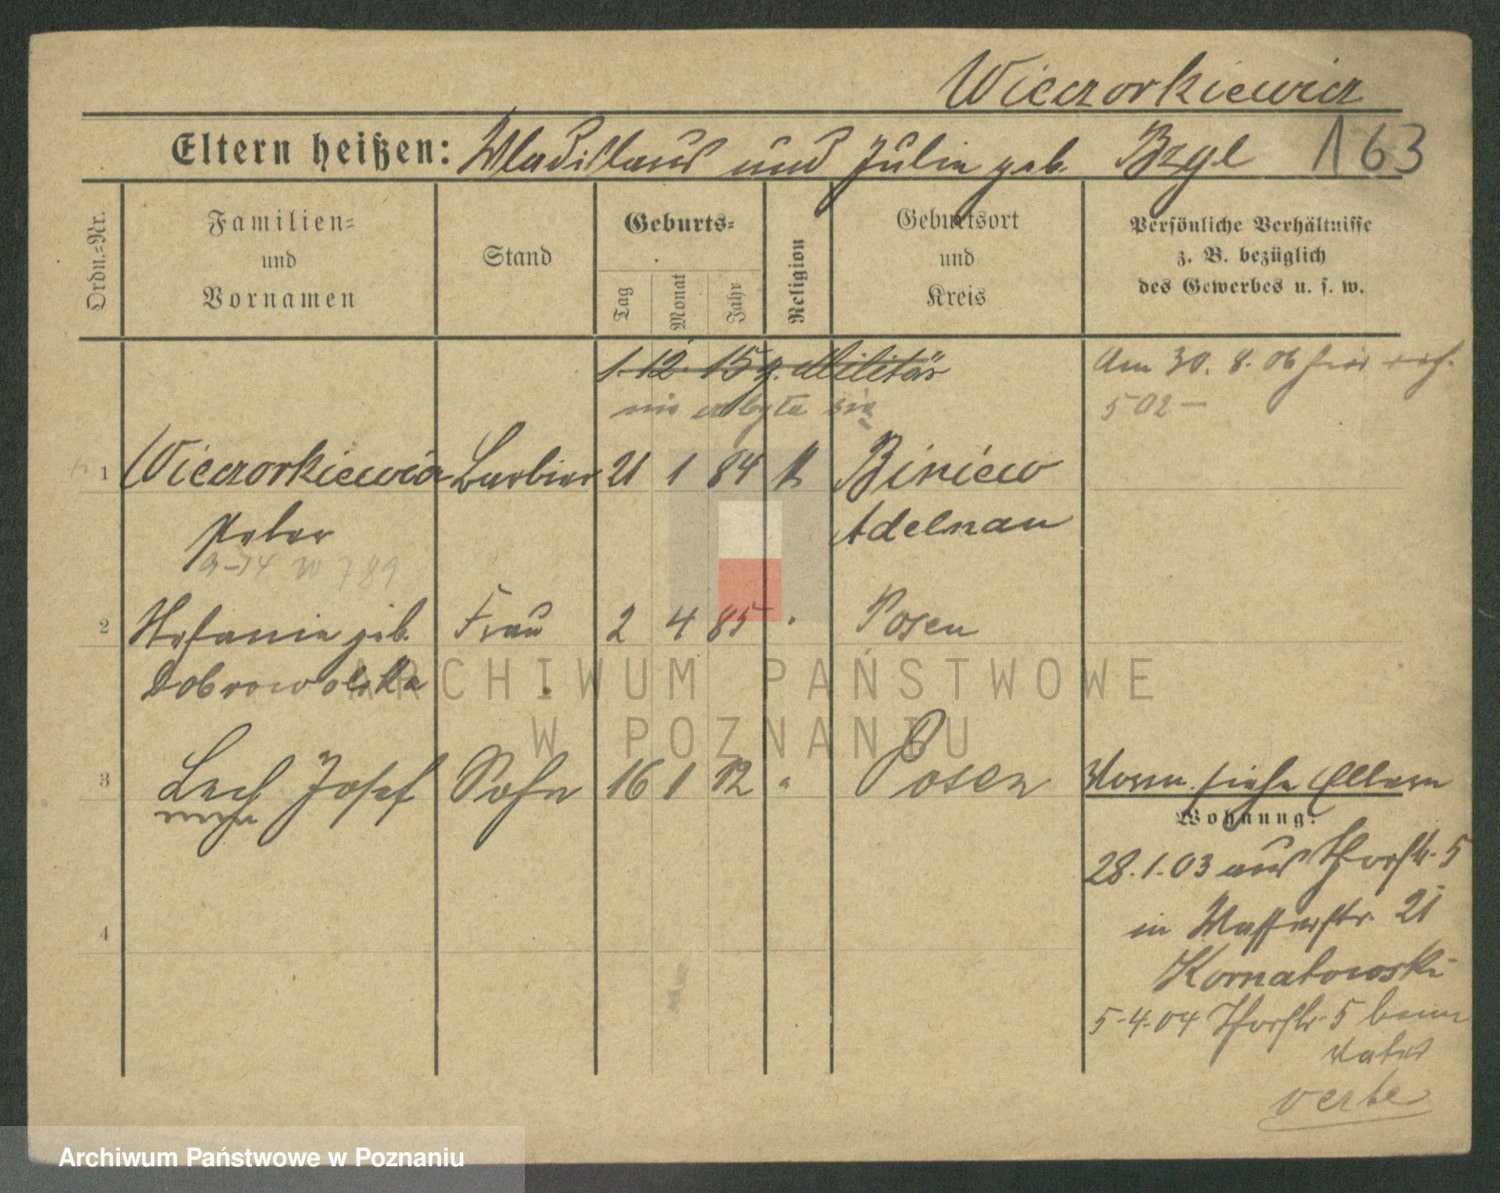 Wieczorkiewicz
Eltern heißen: Wladislaus und Julie geb. Bzyl 163
Ordn.=Nr.
Familien=
und
Vornamen
Stand
Geburts=
Tag
Monat
Jahr
Religion
Geburtsort
und
Kreis
Persönliche Verhältnisse
z. B. bezüglich
des Gewerbes u. s. w.
1. 12. 15 z. Militär
nie odbyła się
Am 30. 8. 06
502 —
1 Wieczorkiewicz Barbier 21 1 84 k Biniew
Peter Adelnau
2 Stefanie geb. Frau 2 4 85 " Posen
Dobrowolska
3 Lech Josef Sohn 16 1 12 " Posen
siehe Eltern
Wohnung:
28.1.03 aus Thorstr. 5
in Wasserstr. 21
Kornatowski
5.4.04 Thorstr. 5 beim
Vater
verte
4
ARCHIWUM PAŃSTWOWE
W POZNANIU
Archiwum Państwowe w Poznaniu